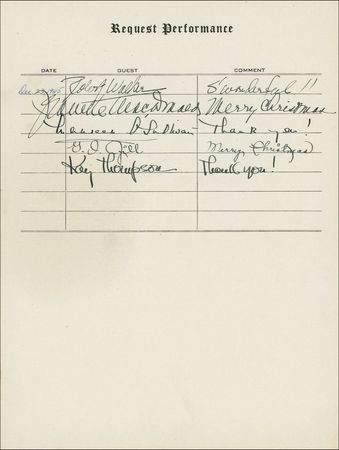 Request Performance
DATE GUEST COMMENT
Robert Walker S'wonderful!!
Jeanette MacDonald Merry Christmas
Maureen O'Sullivan Thank you!
G. I. Jill Merry Christmas
Kay Thompson Thank you!